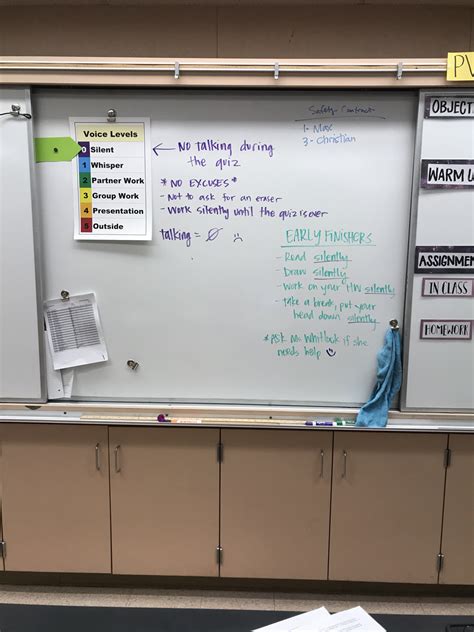 PV
Safety Contract
1- Max
3- Christian
OBJECTI
WARM U
ASSIGNMEN
IN CLASS
HOMEWORK
Voice Levels
0 Silent
1 Whisper
2 Partner Work
3 Group Work
4 Presentation
5 Outside
← NO talking during
the quiz
* NO EXCUSES *
- Not to ask for an eraser
- Work silently until the quiz is over
talking = Ø :(
EARLY FINISHERS
- Read silently
- Draw silently
- Work on your HW silently
- take a break, put your
head down silently
* Ask Ms. Whitlock if she
needs help